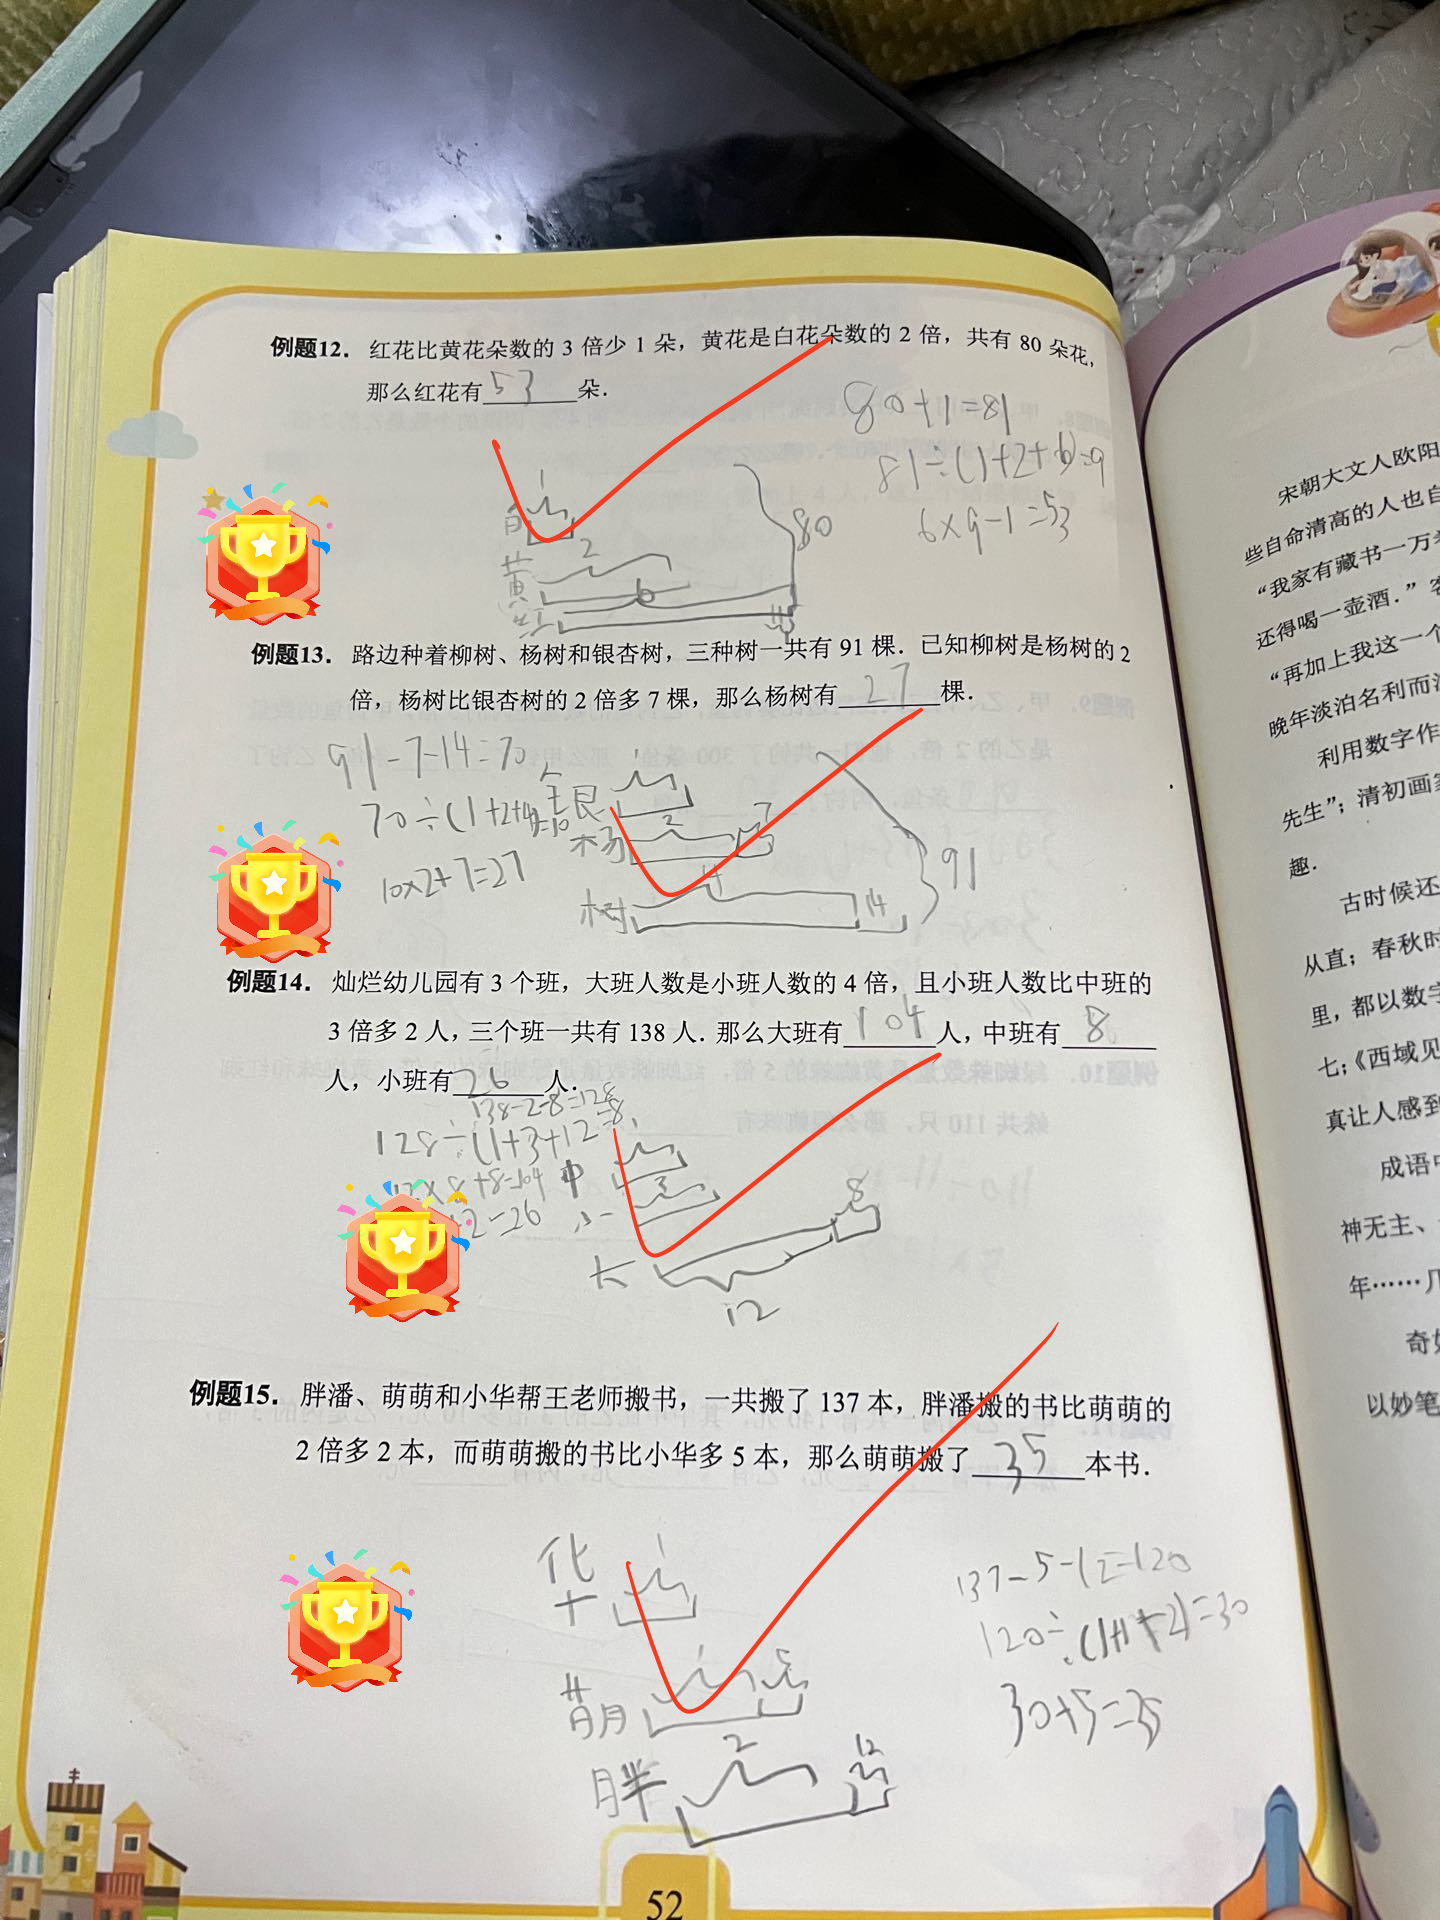 例题12. 红花比黄花朵数的 3 倍少 1 朵，黄花是白花朵数的 2 倍，共有 80 朵花，
那么红花有 53 朵．
80+1=81
81÷(1+2+6)=9
6×9-1=53
1
2
黄
6
红
80
例题13. 路边种着柳树、杨树和银杏树，三种树一共有 91 棵．已知柳树是杨树的 2
倍，杨树比银杏树的 2 倍多 7 棵，那么杨树有 27 棵．
91-7-14=70
70÷(1+2+4)=10
10×2+7=27
银
杨 2 7
树 4 14
91
例题14. 灿烂幼儿园有 3 个班，大班人数是小班人数的 4 倍，且小班人数比中班的
3 倍多 2 人，三个班一共有 138 人．那么大班有 104 人，中班有 8
人，小班有 26 人．
138-2-8=128
128÷(1+3+12=8
×8+8=104
2=26
中
小 3
大 12 8
例题15. 胖潘、萌萌和小华帮王老师搬书，一共搬了 137 本，胖潘搬的书比萌萌的
2 倍多 2 本，而萌萌搬的书比小华多 5 本，那么萌萌搬了 35 本书．
华 1
萌 1 5
胖 2 12
137-5-12=120
120÷(1+1+2)=30
30+5=35
52
宋朝大文人欧阳
些自命清高的人也自
“我家有藏书一万
还得喝一壶酒．”客
“再加上我这一个
晚年淡泊名利而
利用数字作
先生”；清初画
趣．
古时候还
从直；春秋时
里，都以数字
七；《西域见
真让人感到
成语中
神无主、
年……几
奇
以妙笔